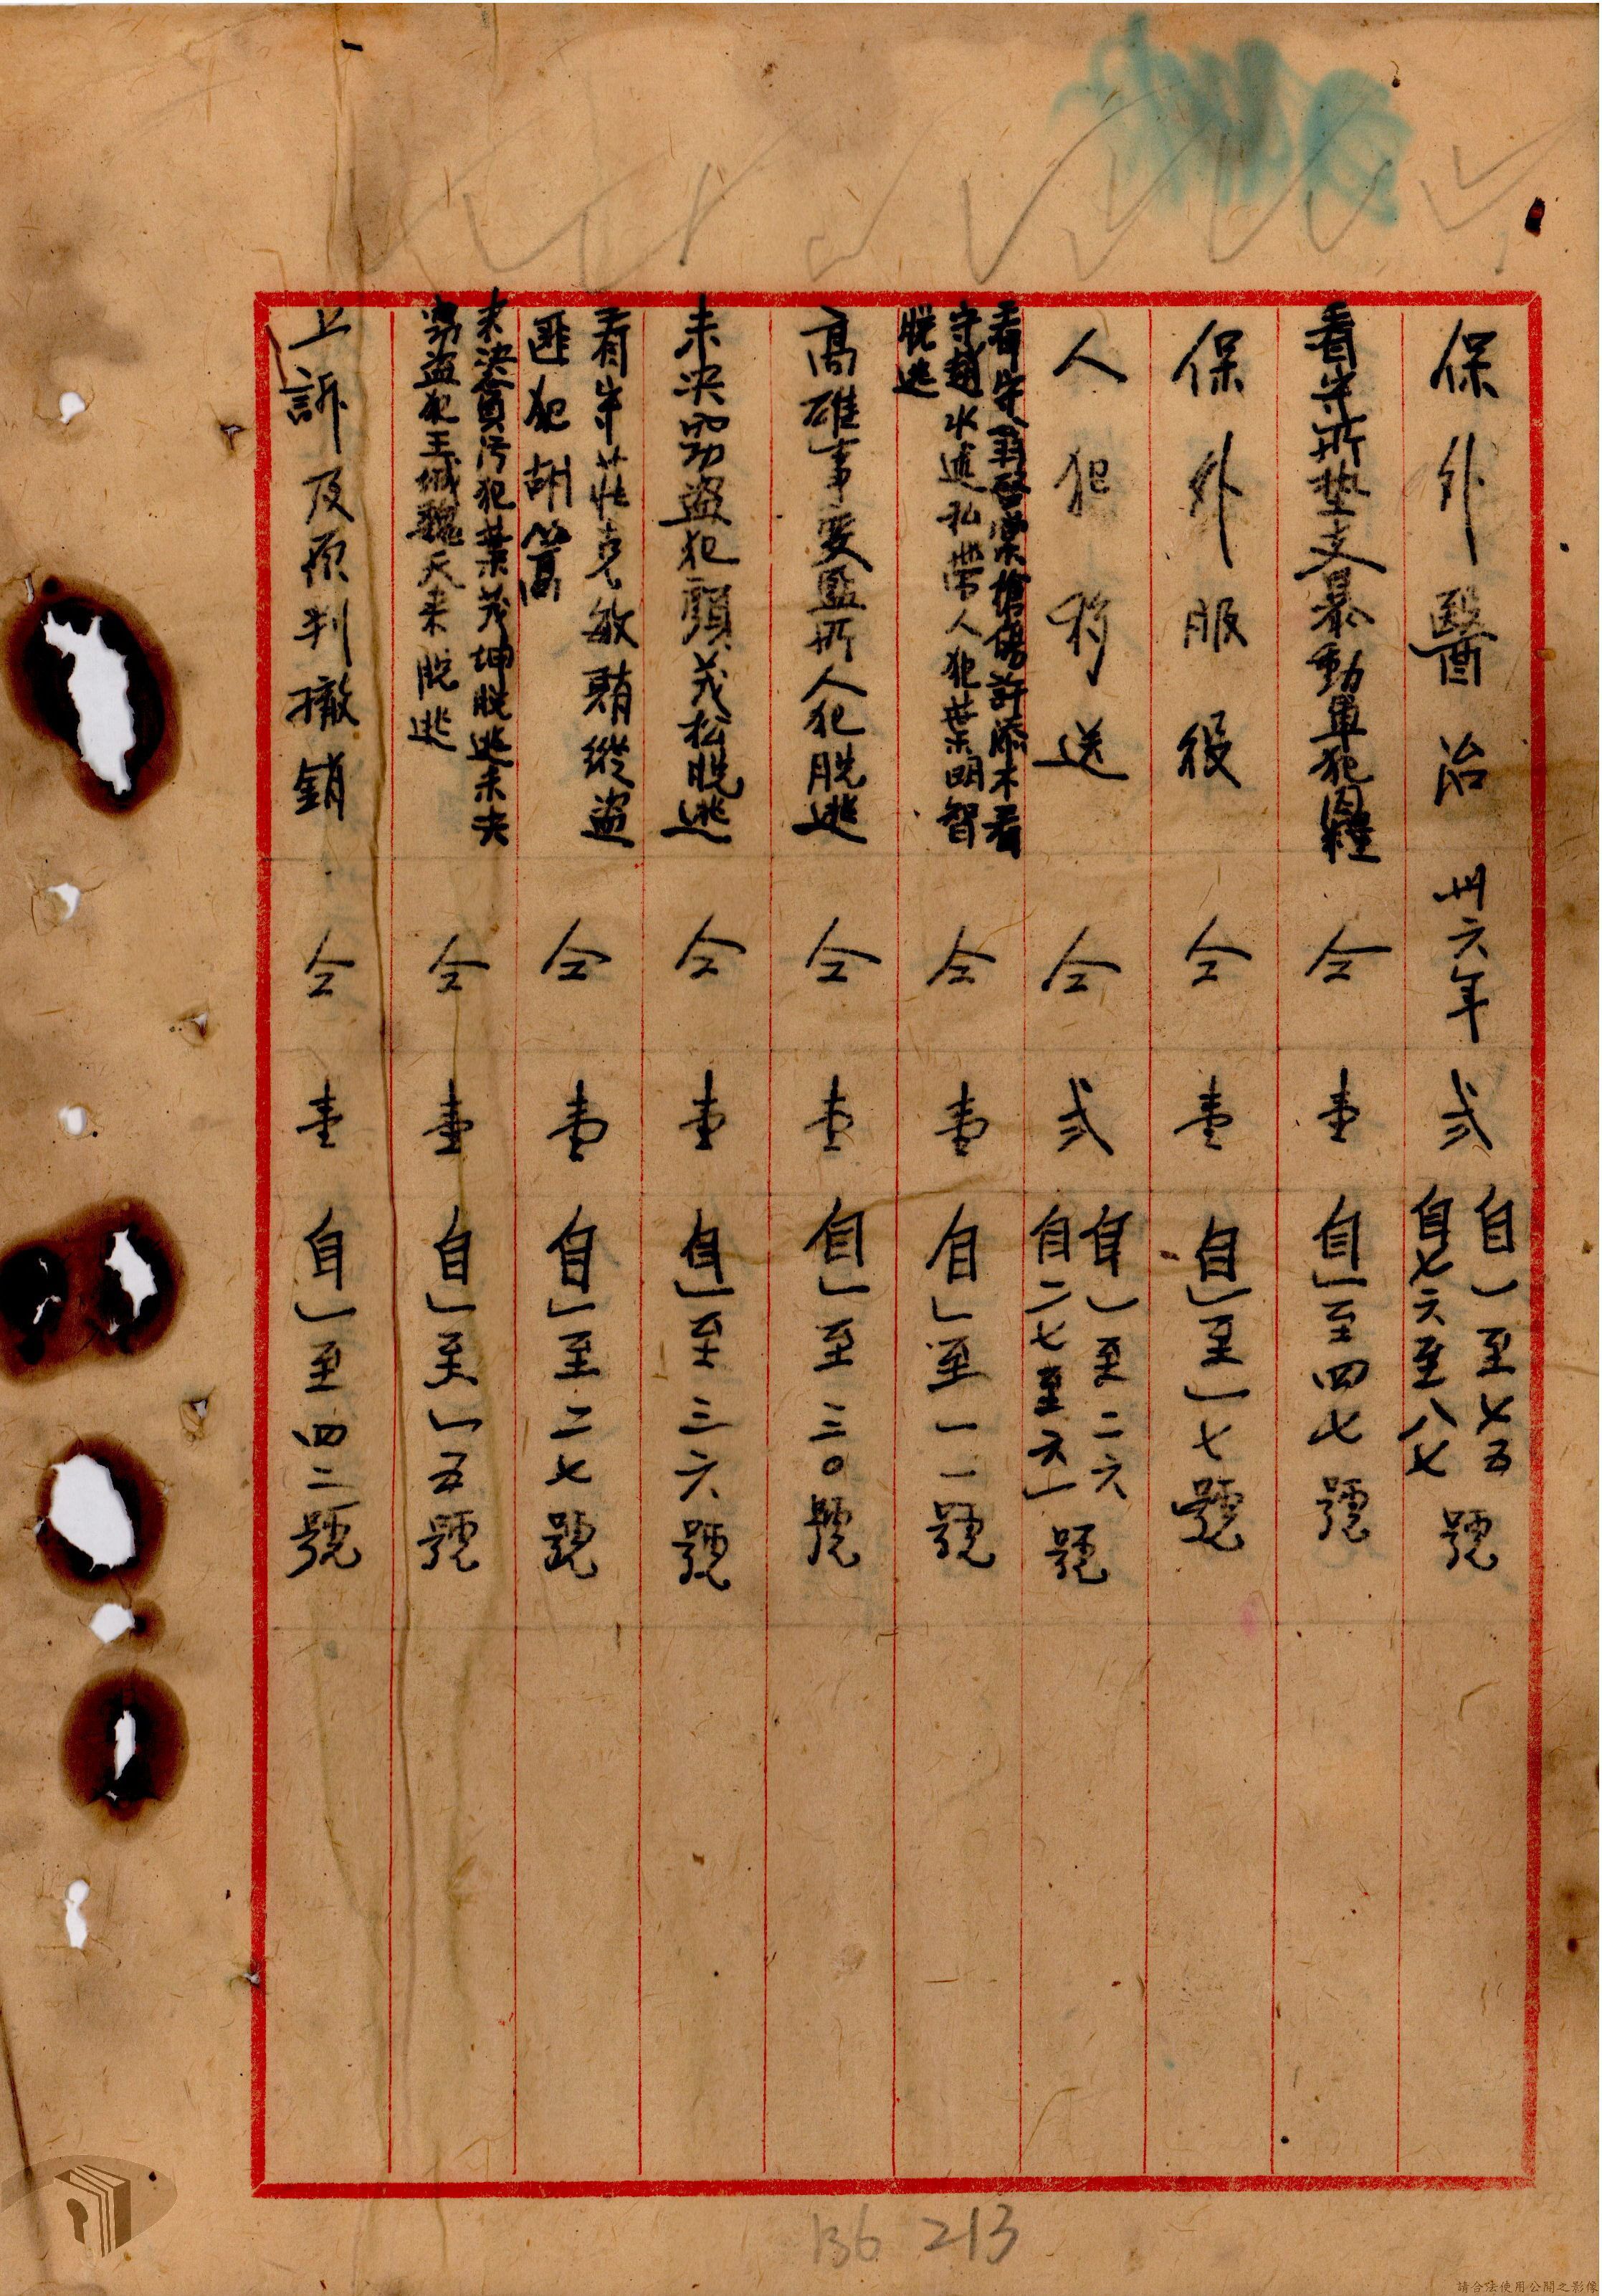 保外醫治 卅六年 弍 自一至七五
自七六至八七 號
看守所墊支暴動軍犯囚糧 仝 壹 自一至四七號
保外服役 仝 壹 自一至一七號
人犯移送 仝 弍 自一至二六
自二七至六一 號
看守 槍傷許添木看
守趙水連私帶人犯葉明智
脫逃 仝 壹 自一至一一號
高雄事變監所人犯脫逃 仝 壹 自一至三〇號
未決竊盜犯顏茂松脫逃 仝 壹 自一至三六號
看守莊克敏賄縱盜
匪犯胡篙 仝 壹 自一至二七號
未決貪污犯葉茂坤脫逃未決
竊盜犯王城魏天来脫逃 仝 壹 自一至一五號
上訴及原判撤銷 仝 壹 自一至四二號
136 213
請合法使用公開之影像